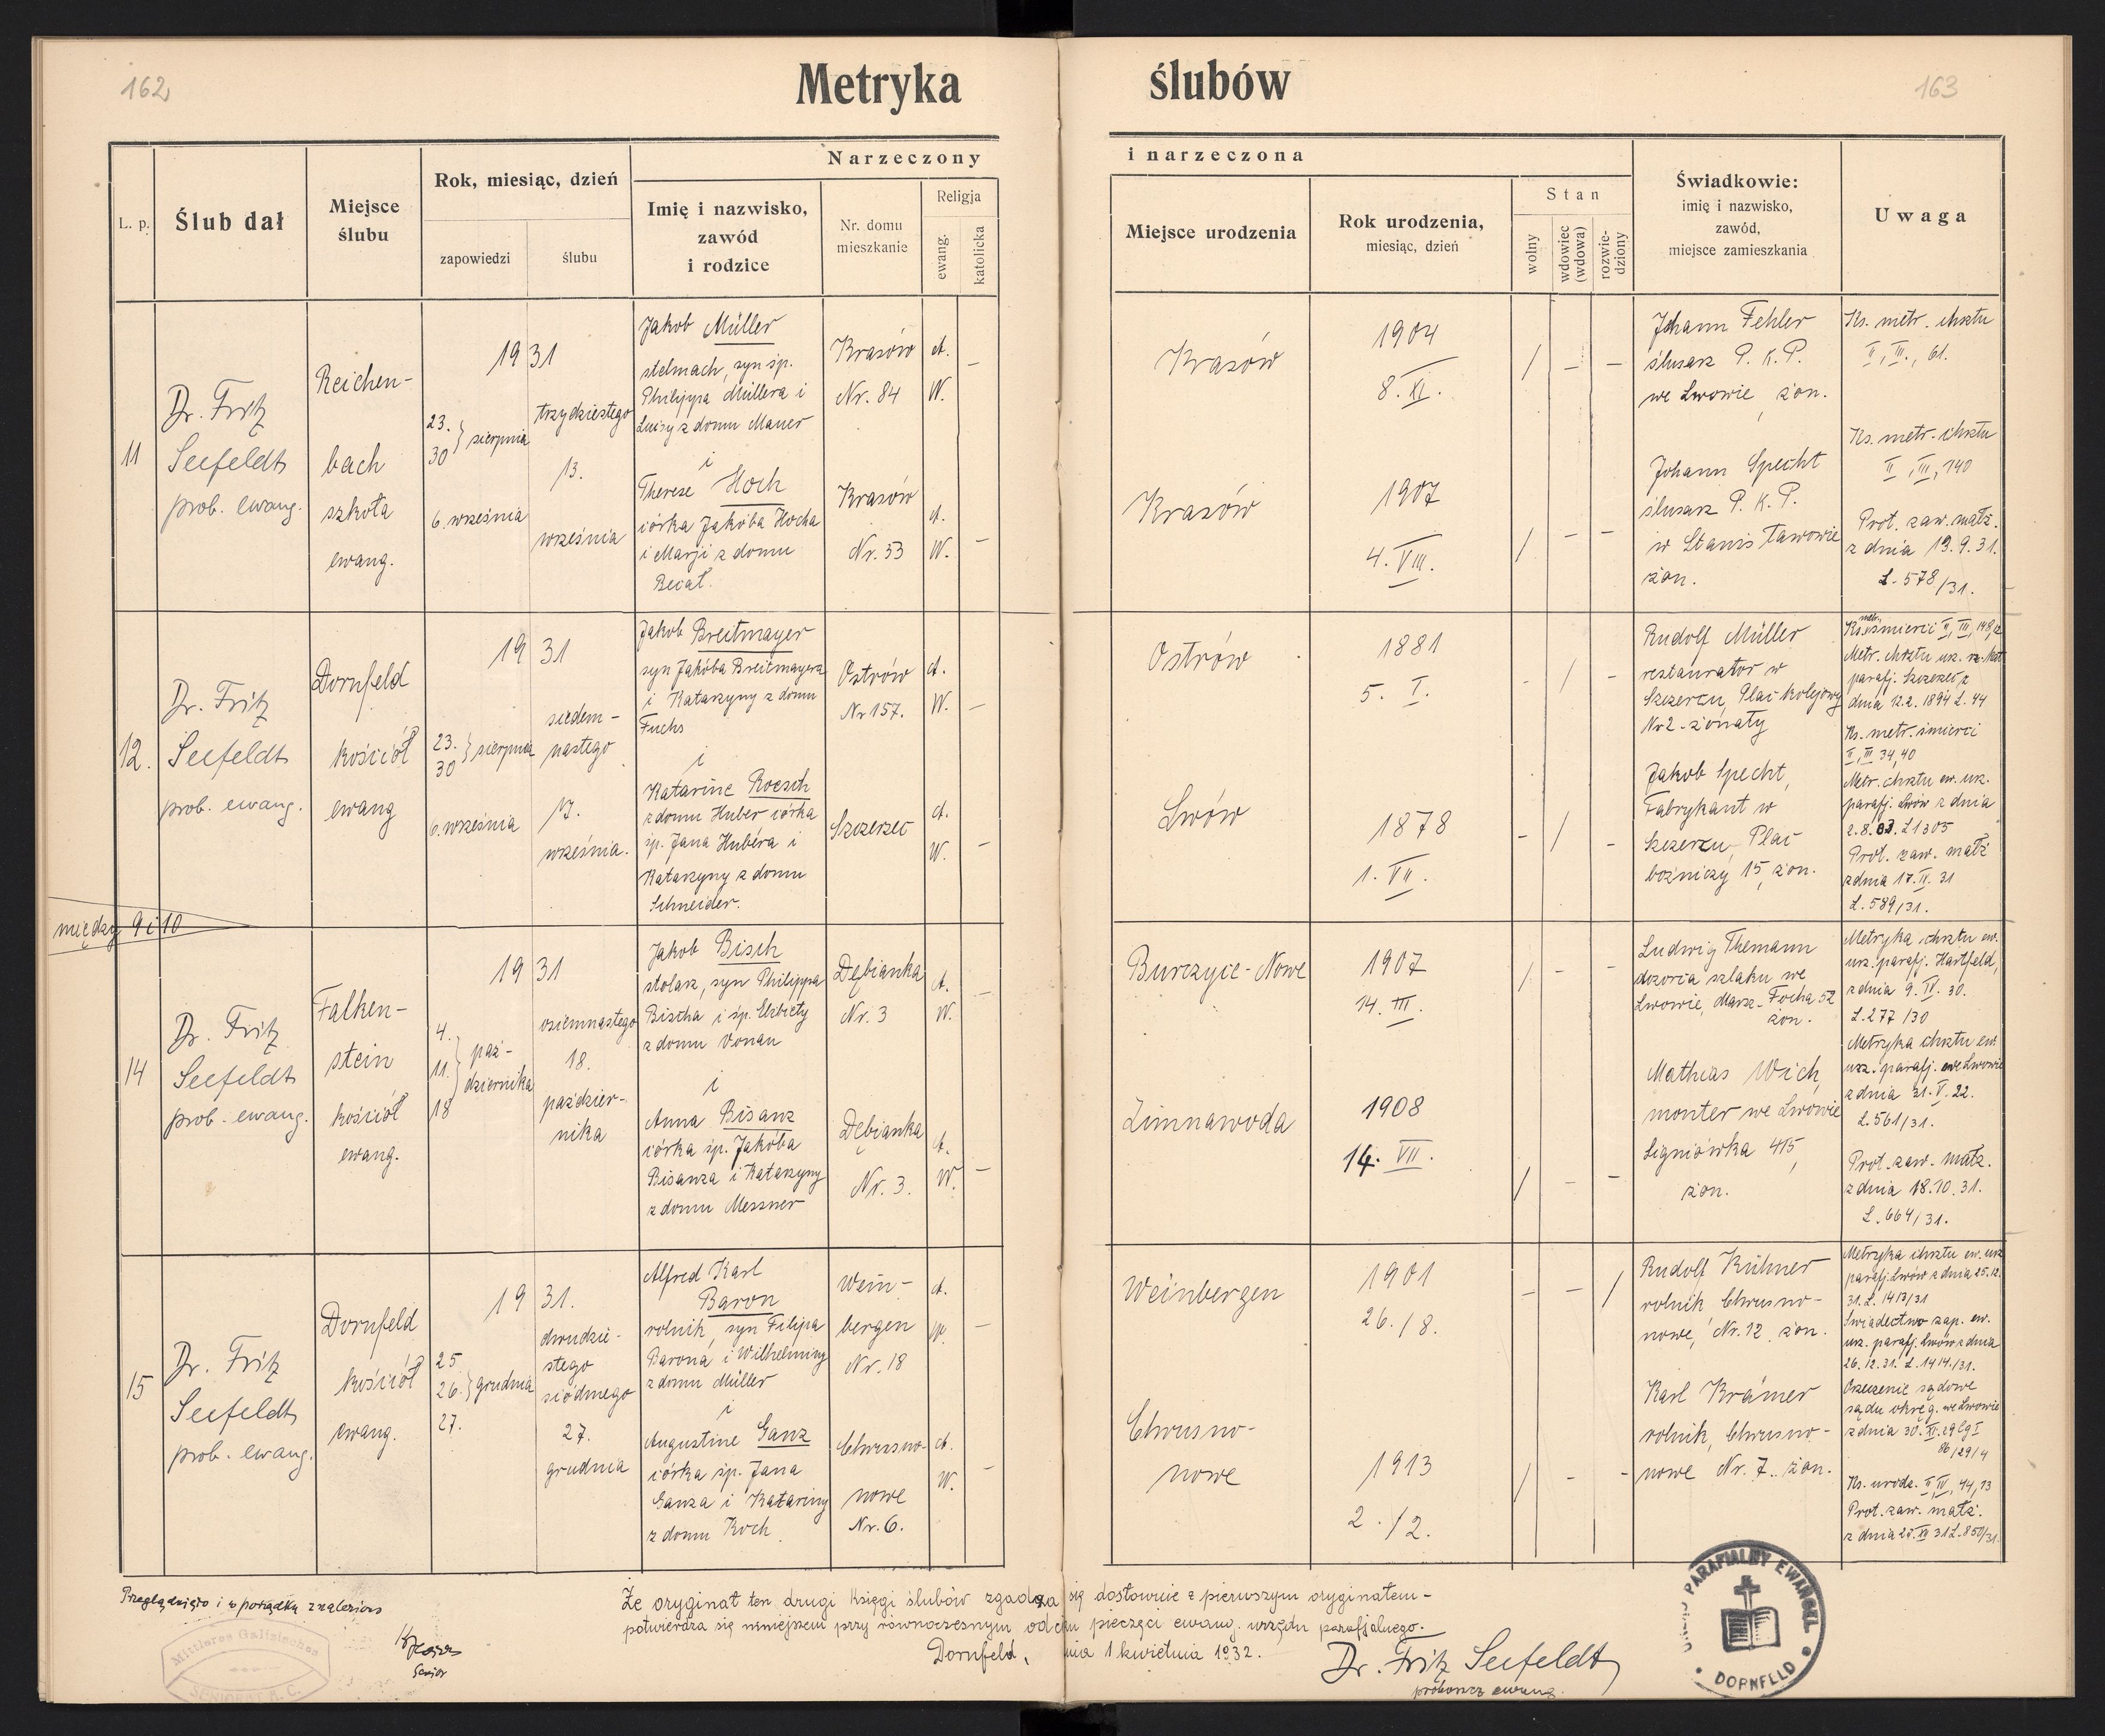 162
Metryka ślubów
163
L. p.
Ślub dał
Miejsce
ślubu
Rok, miesiąc, dzień
zapowiedzi
ślubu
Narzeczony
Imię i nazwisko,
zawód
i rodzice
Nr. domu
mieszkanie
Religja
ewang.
katolicka
i narzeczona
Miejsce urodzenia
Rok urodzenia,
miesiąc, dzień
Stan
wolny
wdowiec
(wdowa)
rozwie-
dziony
Świadkowie:
imię i nazwisko,
zawód,
miejsce zamieszkania
Uwaga
11
Dr. Fritz
Seefeldt
prob. ewang.
Reichen-
bach
szkoła
ewang.
1931
23.
30 } sierpnia
6. września
trzydziestego
13.
września
Jakob Müller
stelmach, syn śp.
Philippa Müllera i
Luisy z domu Mauer
i
Therese Hoch
córka Jakóba Hocha
i Marji z domu
Krasów
Nr. 84
A.
W. –
Krasów
Nr. 53
A.
W. –
Krasów
1904
8. XI.
/ – –
Krasów
1907
4. VIII.
/ – –
Johann Fehler
ślusarz P. K. P.
we Lwowie, żon.
Johann Specht
ślusarz P. K. P.
w Stanisławowie
żon.
Ks. metr. chrztu
II, III., 61.
Ks. metr. chrztu
II, III, 140
Prot. zaw. małż.
z dnia 13.9.31.
L. 578/31.
12.
Dr. Fritz
Seefeldt
prob. ewang.
Dornfeld
kościół
ewang
1931
23.
30 } sierpnia
6. września
siedem-
nastego
17.
września.
Jakob Breitmayer
syn Jakóba Breitmayera
i Katarzyny z domu
Fuchs
i
Katarine Roesch
z domu Huber córka
śp. Jana Hubera i
Katarzyny z domu
Schneider.
Ostrów
Nr 157.
A.
W. –
Szczerzec
A.
W. –
Ostrów
1881
5. I.
- / -
Lwów
1878
1. VII.
- / -
Rudolf Müller
restaurator w
Szczercu, Plac kolejowy
Nr 2 - żonaty
Jakob Specht,
Fabrykant w
Szczercu, Plac
bożniczy 15, żon.
Ks. metr. śmierci II, III, 148,12
Metr. chrztu urz. rz.-kat
parafj. Szczerzec z
dnia 12.2.1894 L. 44
Ks. metr. śmierci
II, III 34,40
Metr. chrztu ew. urz.
parafj. Lwów z dnia
2.8.03. L 1305
Prot. zaw. małż
z dnia 17. 31
L. 589/31.
między 9 i 10
14
Dr. Fritz
Seefeldt
prob. ewang.
Falken-
stein
kościół
ewang.
1931
4.
11. } paź-
dziernika
18
osiemnastego
18.
paździer-
nika
Jakob Bisch
stolarz, syn Philippa
Bischa i śp. Elżbiety
z domu Vonau
i
Anna Bisanz
córka śp. Jakóba
Bisanza i Katarzyny
z domu Messner
Dębianka
Nr. 3
A.
W. –
Dębianka
Nr. 3.
A.
W. –
Burczyce-Nowe
1907
14. III.
/ - -
Zimnawoda
1908
14. VII.
/ - -
Ludwig Themann
dozorca szlaku we
Lwowie, Marsz. Focha 52
żon.
Mathias Wich,
monter we Lwowie
Signiówka 415,
żon.
Metryka chrztu ew.
urz. parafj. Hartfeld,
z dnia 9. IV. 30.
L. 277/30
Metryka chrztu ew.
urz. parafj. we Lwowie
z dnia 31. V. 22.
L. 561/31.
Prot. zaw. małż.
z dnia 18.10.31.
L. 664/31.
15
Dr. Fritz
Seefeldt
prob. ewang.
Dornfeld
kościół
ewang.
1931.
25
26. } grudnia
27.
dwudzie-
stego
siódmego
27.
grudnia
Alfred Karl
Baron
rolnik, syn Filipa
Barona i Wilhelminy
z domu Müller
i
Augustine Ganz
córka śp. Jana
Ganza i Katariny
z domu Koch
Wein-
bergen
Nr. 18
A.
W. –
Chrusno-
nowe
Nr. 6.
A.
W. –
Weinbergen
1901
26./8.
- - /
Chrusno-
nowe
1913
2./2.
/ - -
Rudolf Kühner
rolnik Chrusno-
nowe, Nr. 12, żon.
Karl Krämer
rolnik, Chrusno-
nowe Nr. 7. żon.
Metryka chrztu ew. urz
parafj. Lwów z dnia 25.12.
31. L. 1413/31
Świadectwo zap. ew.
urz. parafj. Lwów z dnia
26.12.31. L. 1414/31.
Orzeczenie sądowe
sądu okręg. we Lwowie
z dnia 30. XI. 29 Cg I
86/29/4
Ks. urodz. II, IV, 44, 13
Prot. zaw. małż.
z dnia 27. XII 31 L. 850/31
Przeglądnięto i w porządku znaleziono
Senior
Mittleres Galizisches
SENIORAT A. C.
Że oryginał ten drugi Księgi ślubów zgadza się dosłownie z pierwszym oryginałem -
potwierdza się niniejszem przy równoczesnym odciśnięciu pieczęci ewang. urzędu parafjalnego.
Dornfeld, dnia 1 kwietnia 1932.
Dr. Fritz Seefeldt
proboszcz ewang.
URZĄD PARAFIALNY EWANGEL.
DORNFELD